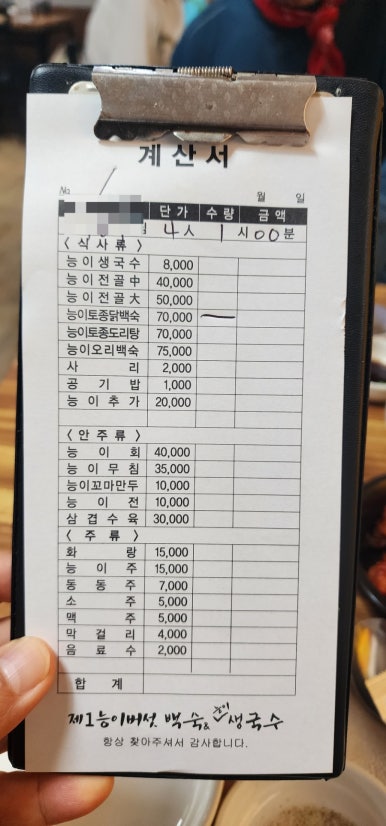 계산서
No
월 일
단가 수량 금액
4人 1시00분
〈식사류〉
능이생국수 8,000
능이전골中 40,000
능이전골大 50,000
능이토종닭백숙 70,000 一
능이토종도리탕 70,000
능이오리백숙 75,000
사리 2,000
공기밥 1,000
능이추가 20,000
〈안주류〉
능이회 40,000
능이무침 35,000
능이꼬마만두 10,000
능이전 10,000
삼겹수육 30,000
〈주류〉
화랑 15,000
능이주 15,000
동동주 7,000
소주 5,000
맥주 5,000
막걸리 4,000
음료수 2,000
합계
제1능이버섯 백숙& 능이 생국수
항상 찾아주셔서 감사합니다.